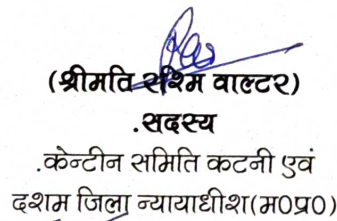 (श्रीमति रश्मि वाल्टर)
.सदस्य
.केन्टीन समिति कटनी एवं
दशम जिला न्यायाधीश(म०प्र०)